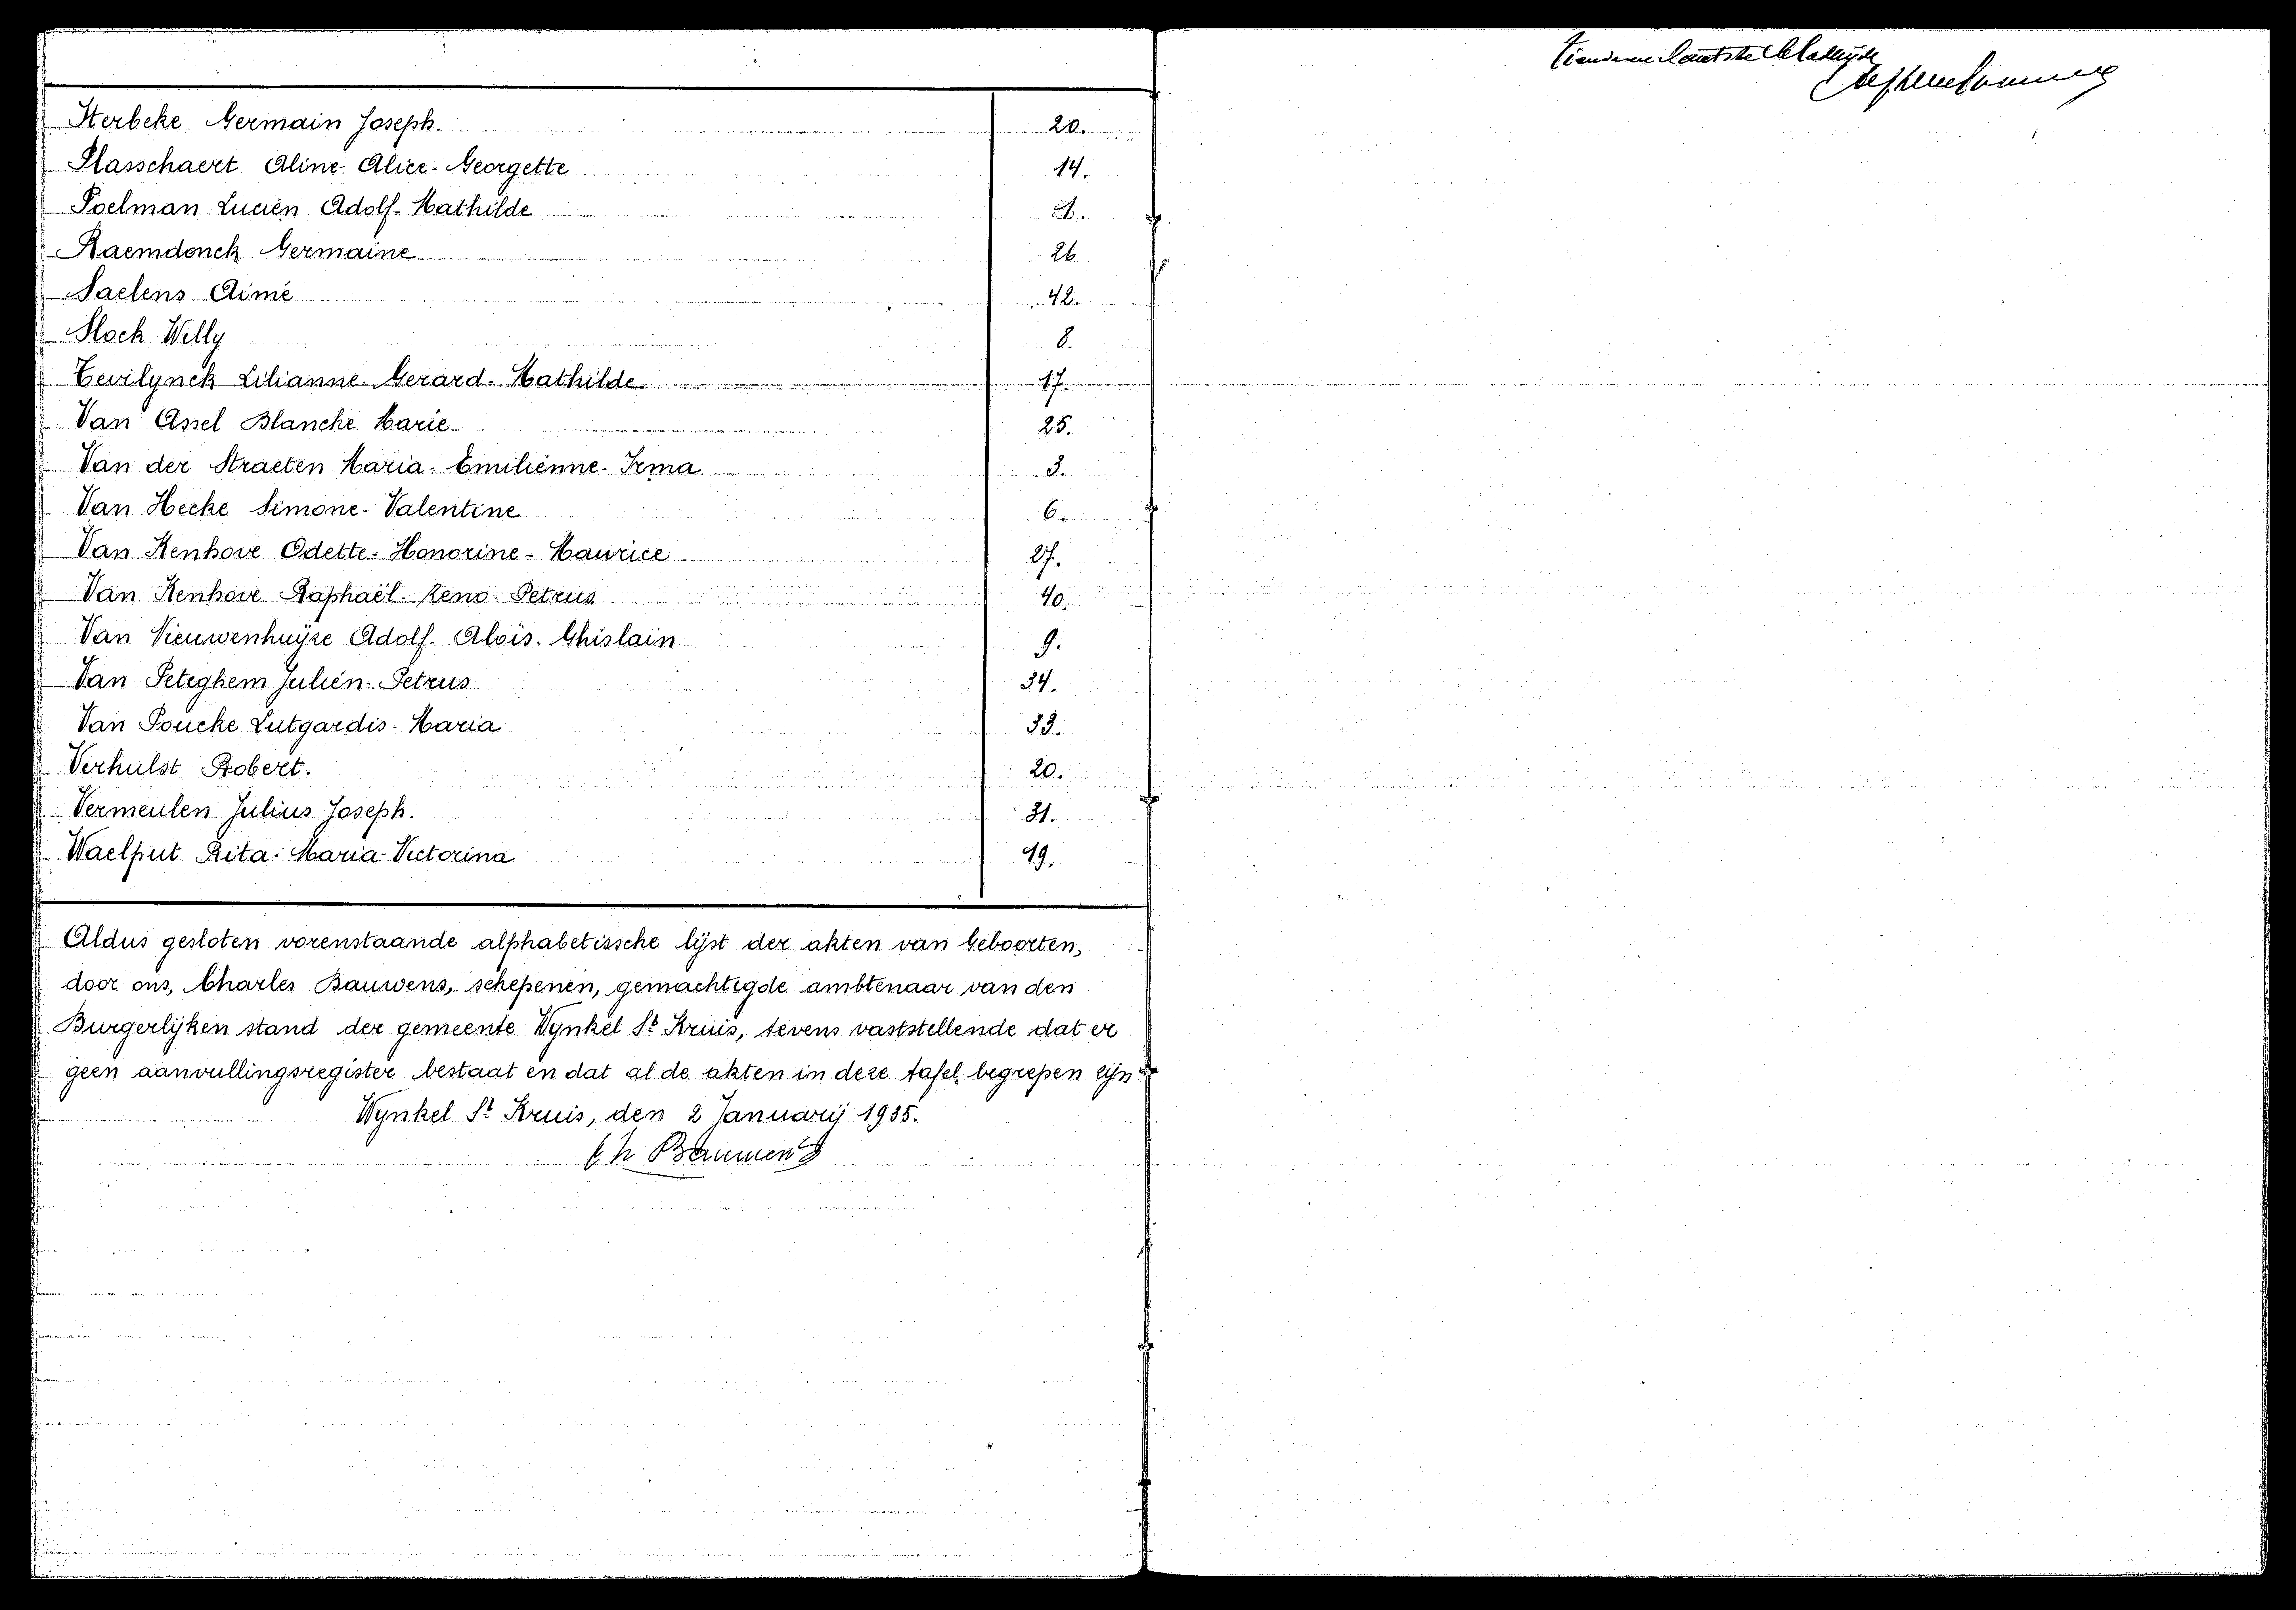 Sterbeke Germain Joseph. 20.
Plasschaert Aline-Alice-Georgette 14.
Poelman Lucien Adolf-Mathilde 21.
Raemdonck Germaine 26
Saelens Aimé 42.
Slock Willy 8.
Tevilynck Lilianne-Gerard-Mathilde 17.
Van Assel Blanche Marie 25.
Van der Straeten Maria-Emilienne-Irma 3.
Van Hecke Simone-Valentine 6.
Van Kenhove Odette-Honorine-Maurice 27.
Van Kenhove Raphaël-Reno-Petrus 40.
Van Nieuwenhuÿze Adolf-Aloïs-Ghislain 9.
Van Peteghem Julien-Petrus 34.
Van Poucke Lutgardis-Maria 33.
Verhulst Robert. 20.
Vermeulen Julius Joseph. 31.
Waelput Rita-Maria-Victorina 19.
Aldus gesloten vorenstaande alphabetissche lijst der akten van Geboorten,
door ons, Charles Bauwens, schepenen, gemachtigde ambtenaar van den
Burgerlijken stand der gemeente Wynkel St Kruis, tevens vaststellende dat er
geen aanvullingsregister bestaat en dat al de akten in deze tafel begrepen zijn
Wynkel St Kruis, den 2 Januarij 1935.
Ch Bauwens